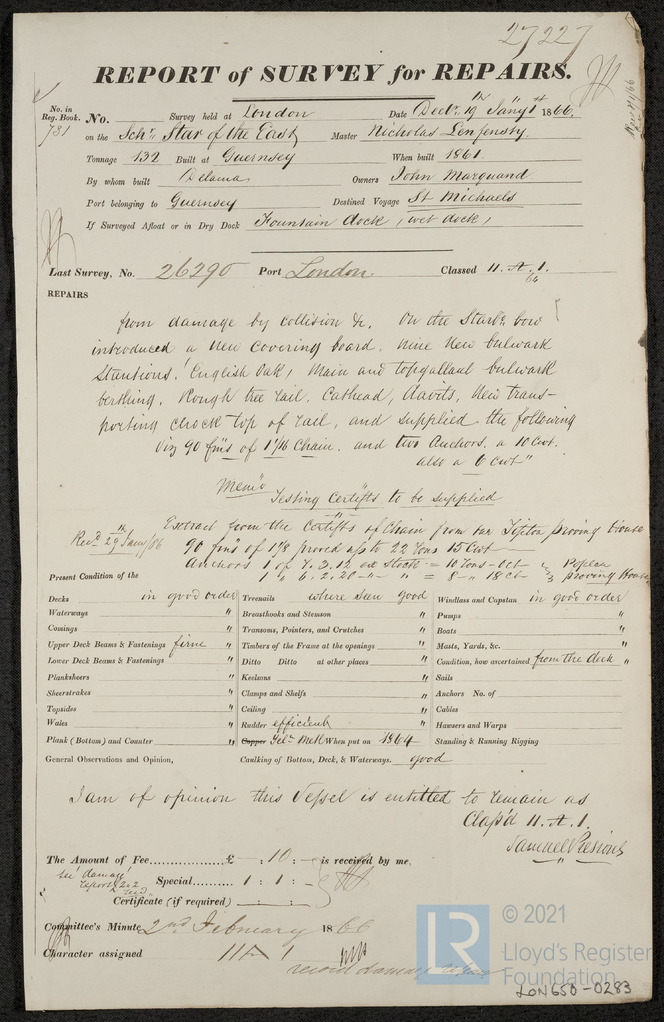 27227
REPORT of SURVEY for REPAIRS.
No. in Reg. Book. 731
No. Survey held at London Date Decr. 19th Jany 1st 1866
on the Schr. Star of the East Master Nicholas
Tonnage 132 Built at Guernsey When built 1861
By whom built Owners John Marquand
Port belonging to Guernsey Destined Voyage St Michaels
If Surveyed Afloat or in Dry Dock Fountain dock, (wet dock)
Last Survey, No. 26290 Port London Classed 11.A.1.
64
REPAIRS
from damage by collision &c. On the Starbd. bow
introduced a New covering board. Nine New bulwark
Stantions. (English Oak) Main and topgallant bulwark
berthing. Rough tree rail. Cathead, Davits, New trans-
porting chock top of rail, and supplied the following
Viz 90 fms of 1 1/16 Chain. and two Anchors. a 10 Cwt.
also a 6 cwt"
Memo Testing Certifts to be supplied
Recd. 29th Jany/66 Extract from the Certifts of Chain from our Tipton proving House
90 fms of 1 1/8 proved up to 22 tons 15 Cwt
Anchors 1 of 7.3.12 ex Stock = 10 tons-0ct Poplar
1 " 6.2.20 -"- " = 8 -"- 18 Ct proving House
Present Condition of the
Decks in good order Treenails where seen good Windlass and Capstan in good order
Waterways " Breasthooks and Stemson " Pumps "
Comings " Transoms, Pointers, and Crutches " Boats "
Upper Deck Beams & Fastenings firm Timbers of the Frame at the openings " Masts, Yards, &c. "
Lower Deck Beams & Fastenings " Ditto Ditto at other places " Condition, how ascertained from the deck "
Planksheers " Keelsons " Sails
Sheerstrakes " Clamps and Shelfs " Anchors No. of
Topsides " Ceiling " Cables
Wales " Rudder efficient " Hawsers and Warps
Plank (Bottom) and Counter " Copper Yelw Metl When put on 1864 Standing & Running Rigging
General Observations and Opinion, Caulking of Bottom, Deck, & Waterways. good
I am of opinion this Vessel is entitled to remain as
Class'd 11.A.1.
Samuel
The Amount of Fee £ - : 10 : - is received by me,
see damage report
Special 1 : 1 : -
Certificate (if required) - : - : -
Committee's Minute 2nd February 1866
Character assigned 11A1
record damage repairs
LR © 2021
Lloyd's Register
Foundation
LON650-0283